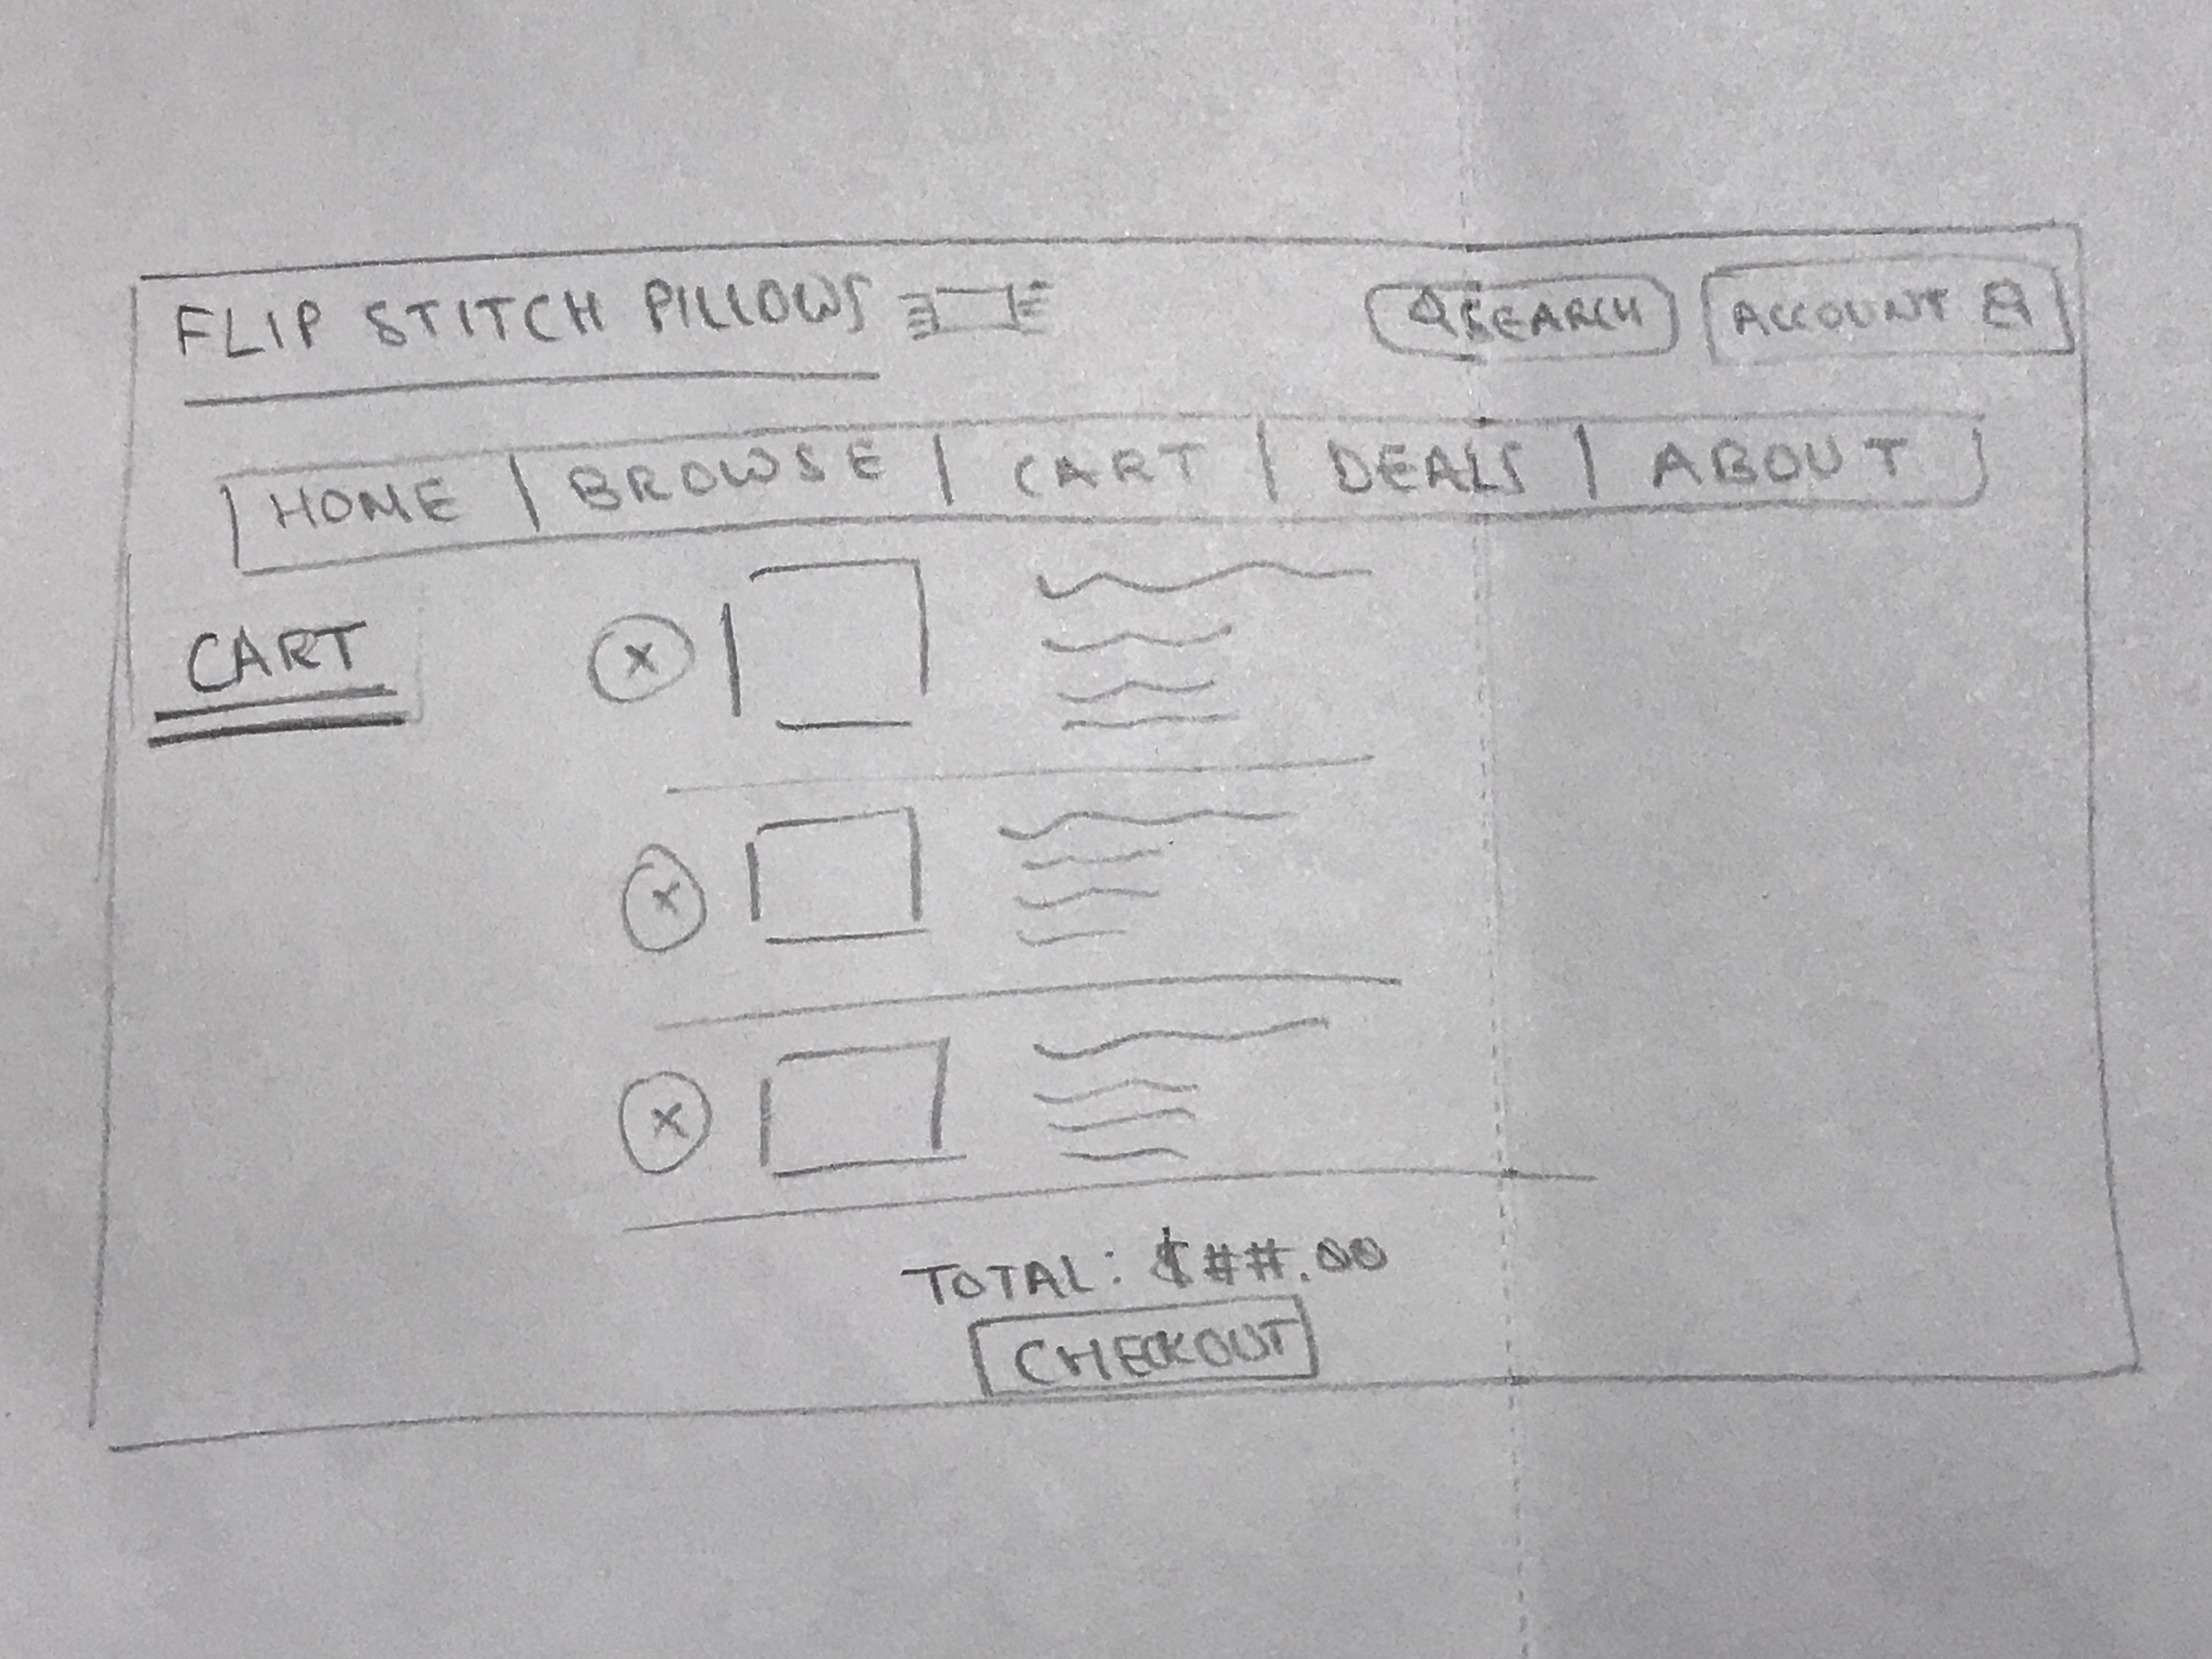 FLIP STITCH PILLOWS
SEARCH
ACCOUNT
HOME | BROWSE | CART | DEALS | ABOUT
CART
X
X
X
TOTAL: $##.00
CHECKOUT